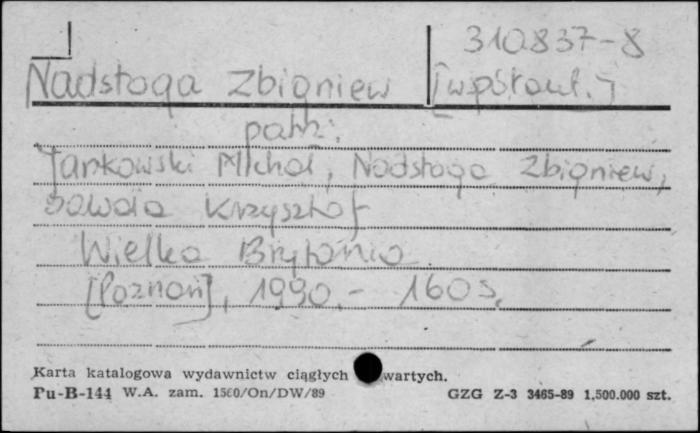 310837-8
Nadstoga Zbigniew [współaut.]
patrz:
Jankowski Michał, Nadstoga Zbigniew,
Sawala Krzysztof
Wielka Brytania
[Poznań], 1990. - 160 s.
Karta katalogowa wydawnictw ciągłych wartych.
Pu-B-144 W.A. zam. 1560/On/DW/89 GZG Z-3 3465-89 1,500.000 szt.